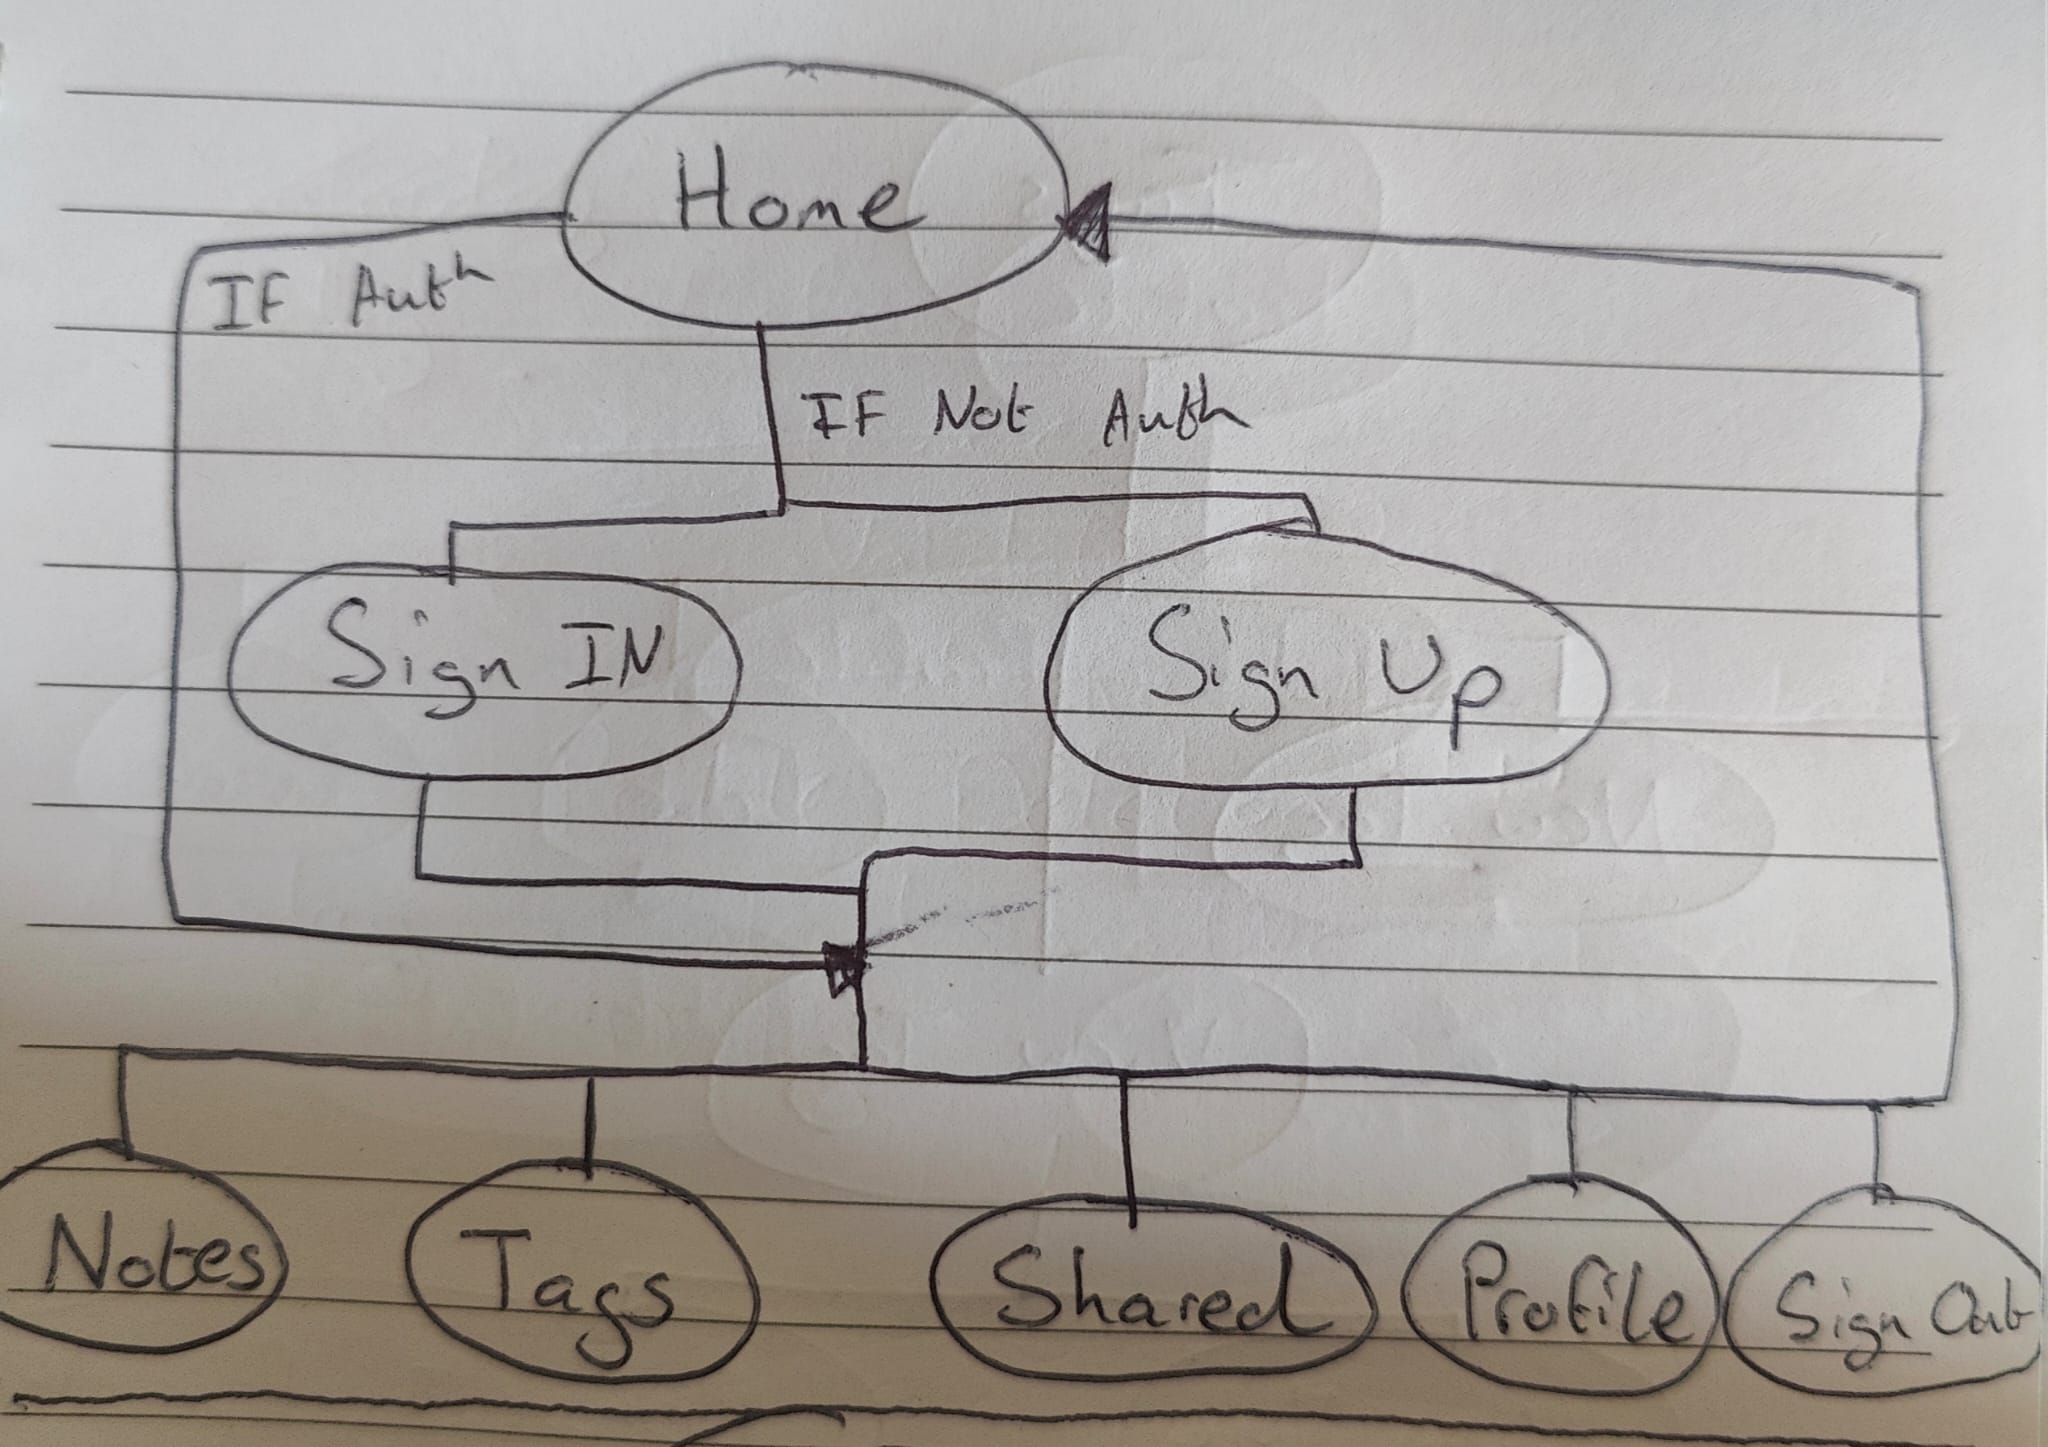 Home
IF Auth
IF Not Auth
Sign IN
Sign Up
Notes
Tags
Shared
Profile
Sign Out